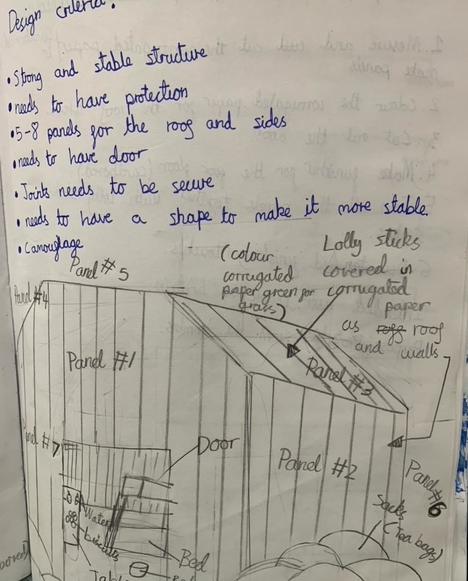 Design criteria.
• Strong and stable structure
• needs to have protection
• 5-8 panels for the roof and sides
• needs to have door
• Joints needs to be secure
• needs to have a shape to make it more stable.
• Camouflage
Panel #5
(colour corrugated paper green for grass)
Lolly sticks covered in corrugated paper as roof and walls
Panel #4
Panel #1
Panel #3
Panel #7
Door
Panel #2
Panel #6
Water
Biscuits
Bed
Sacks (Tea bags)